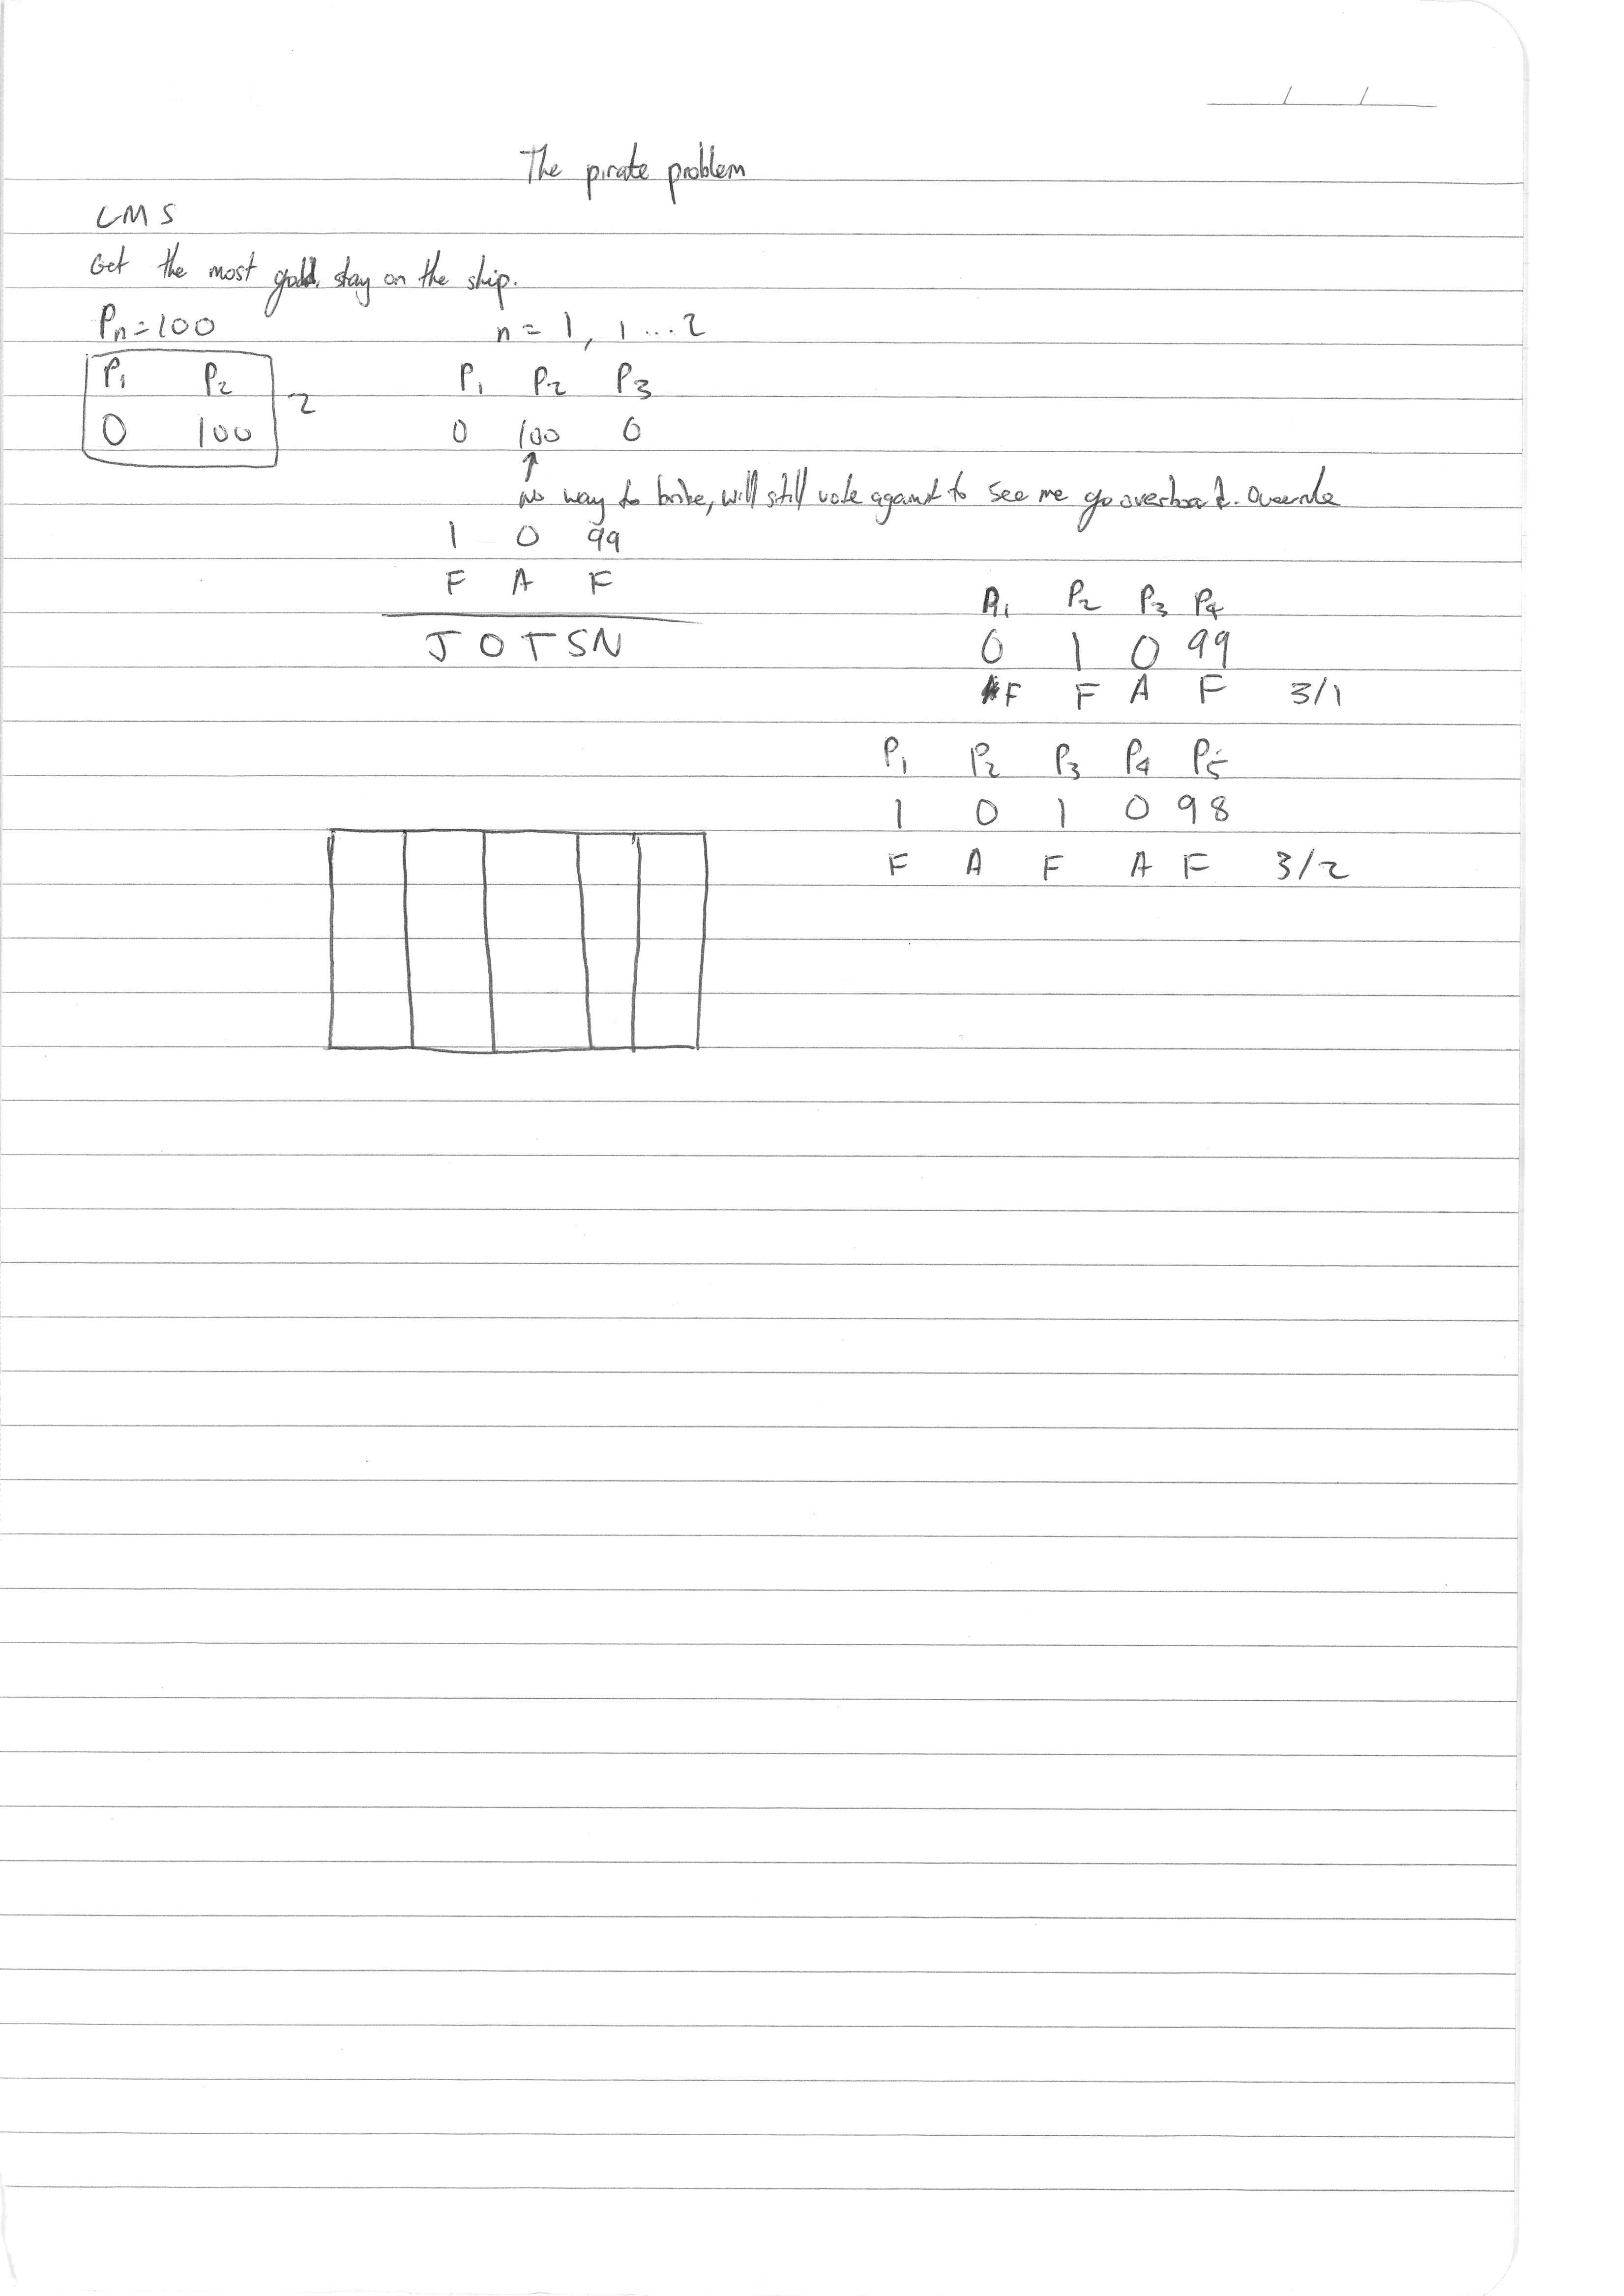 The pirate problem
LMS
Get the most gold. stay on the ship.
Pn=100 n = 1, 1...2
P1 P2
0 100
2
P1 P2 P3
0 100 0
no way to bribe, will still vote against to see me go overboard. Override
1 0 99
F A F
JOTSN
P1 P2 P3 P4
0 1 0 99
F F A F 3/1
P1 P2 P3 P4 P5
1 0 1 0 98
F A F A F 3/2